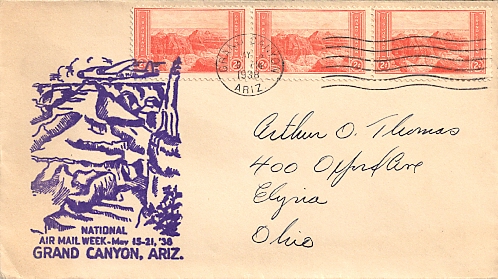 GRAND CANYON
1938
ARIZ.
Arthur O. Thomas
400 Oxford Ave
Elyria
Ohio
NATIONAL
AIR MAIL WEEK - May 15-21, '38
GRAND CANYON, ARIZ.